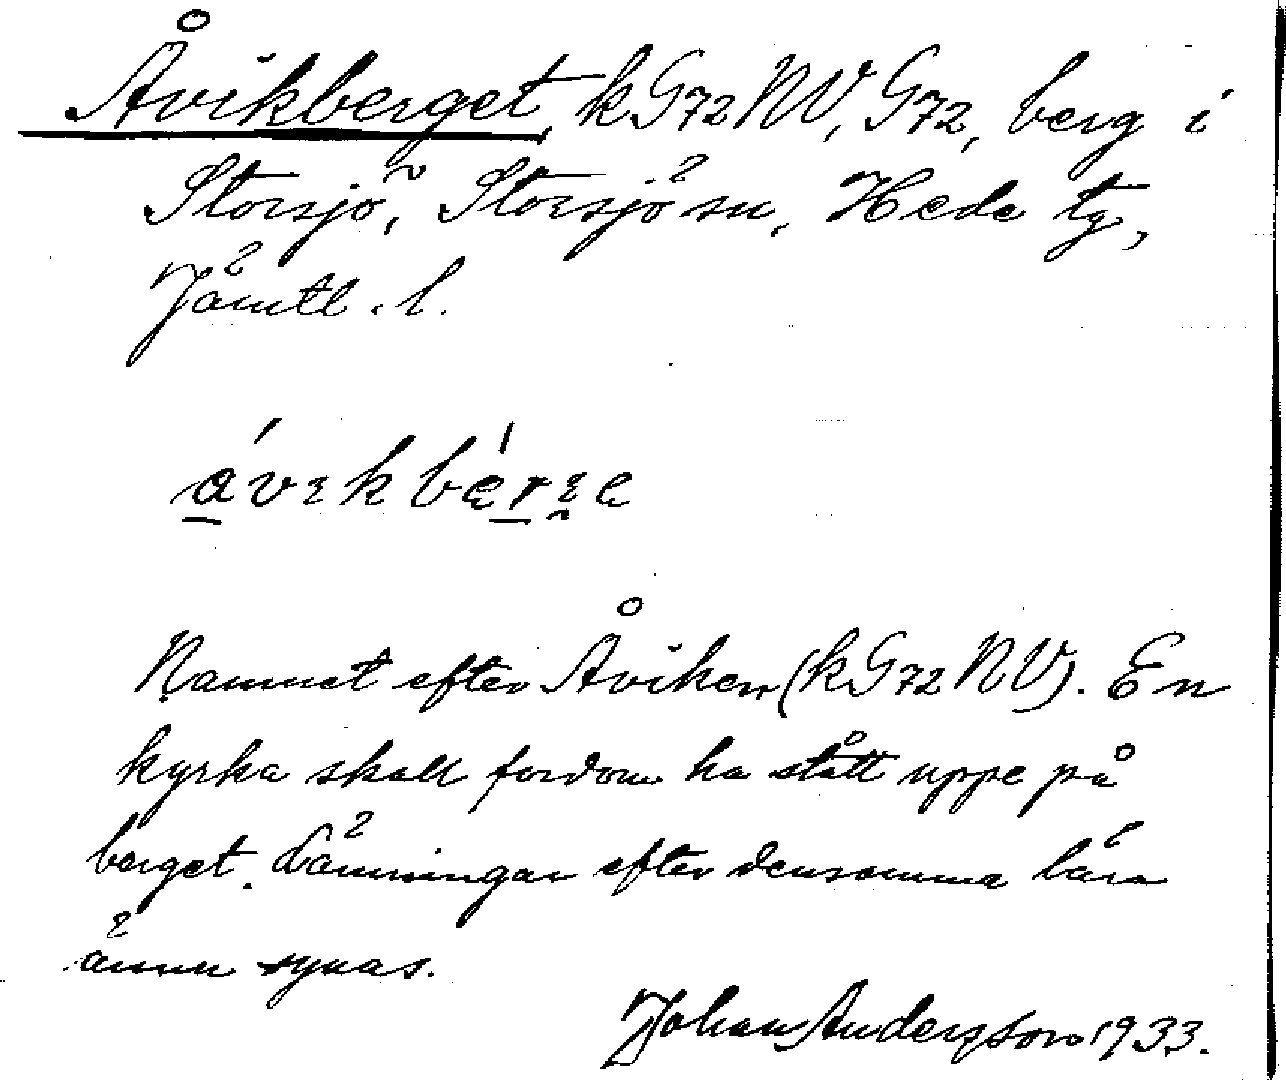 Åvikberget, kG72NV, G72, berg i
Storsjö, Storsjö sn, Hede tg,
Jämtl. l.
Namnet efter Åviken (kG72NV). En
kyrka skall fordom ha stått uppe på
berget. Lämningar efter densamma lära
ännu synas.
Johan Andersson 1933.